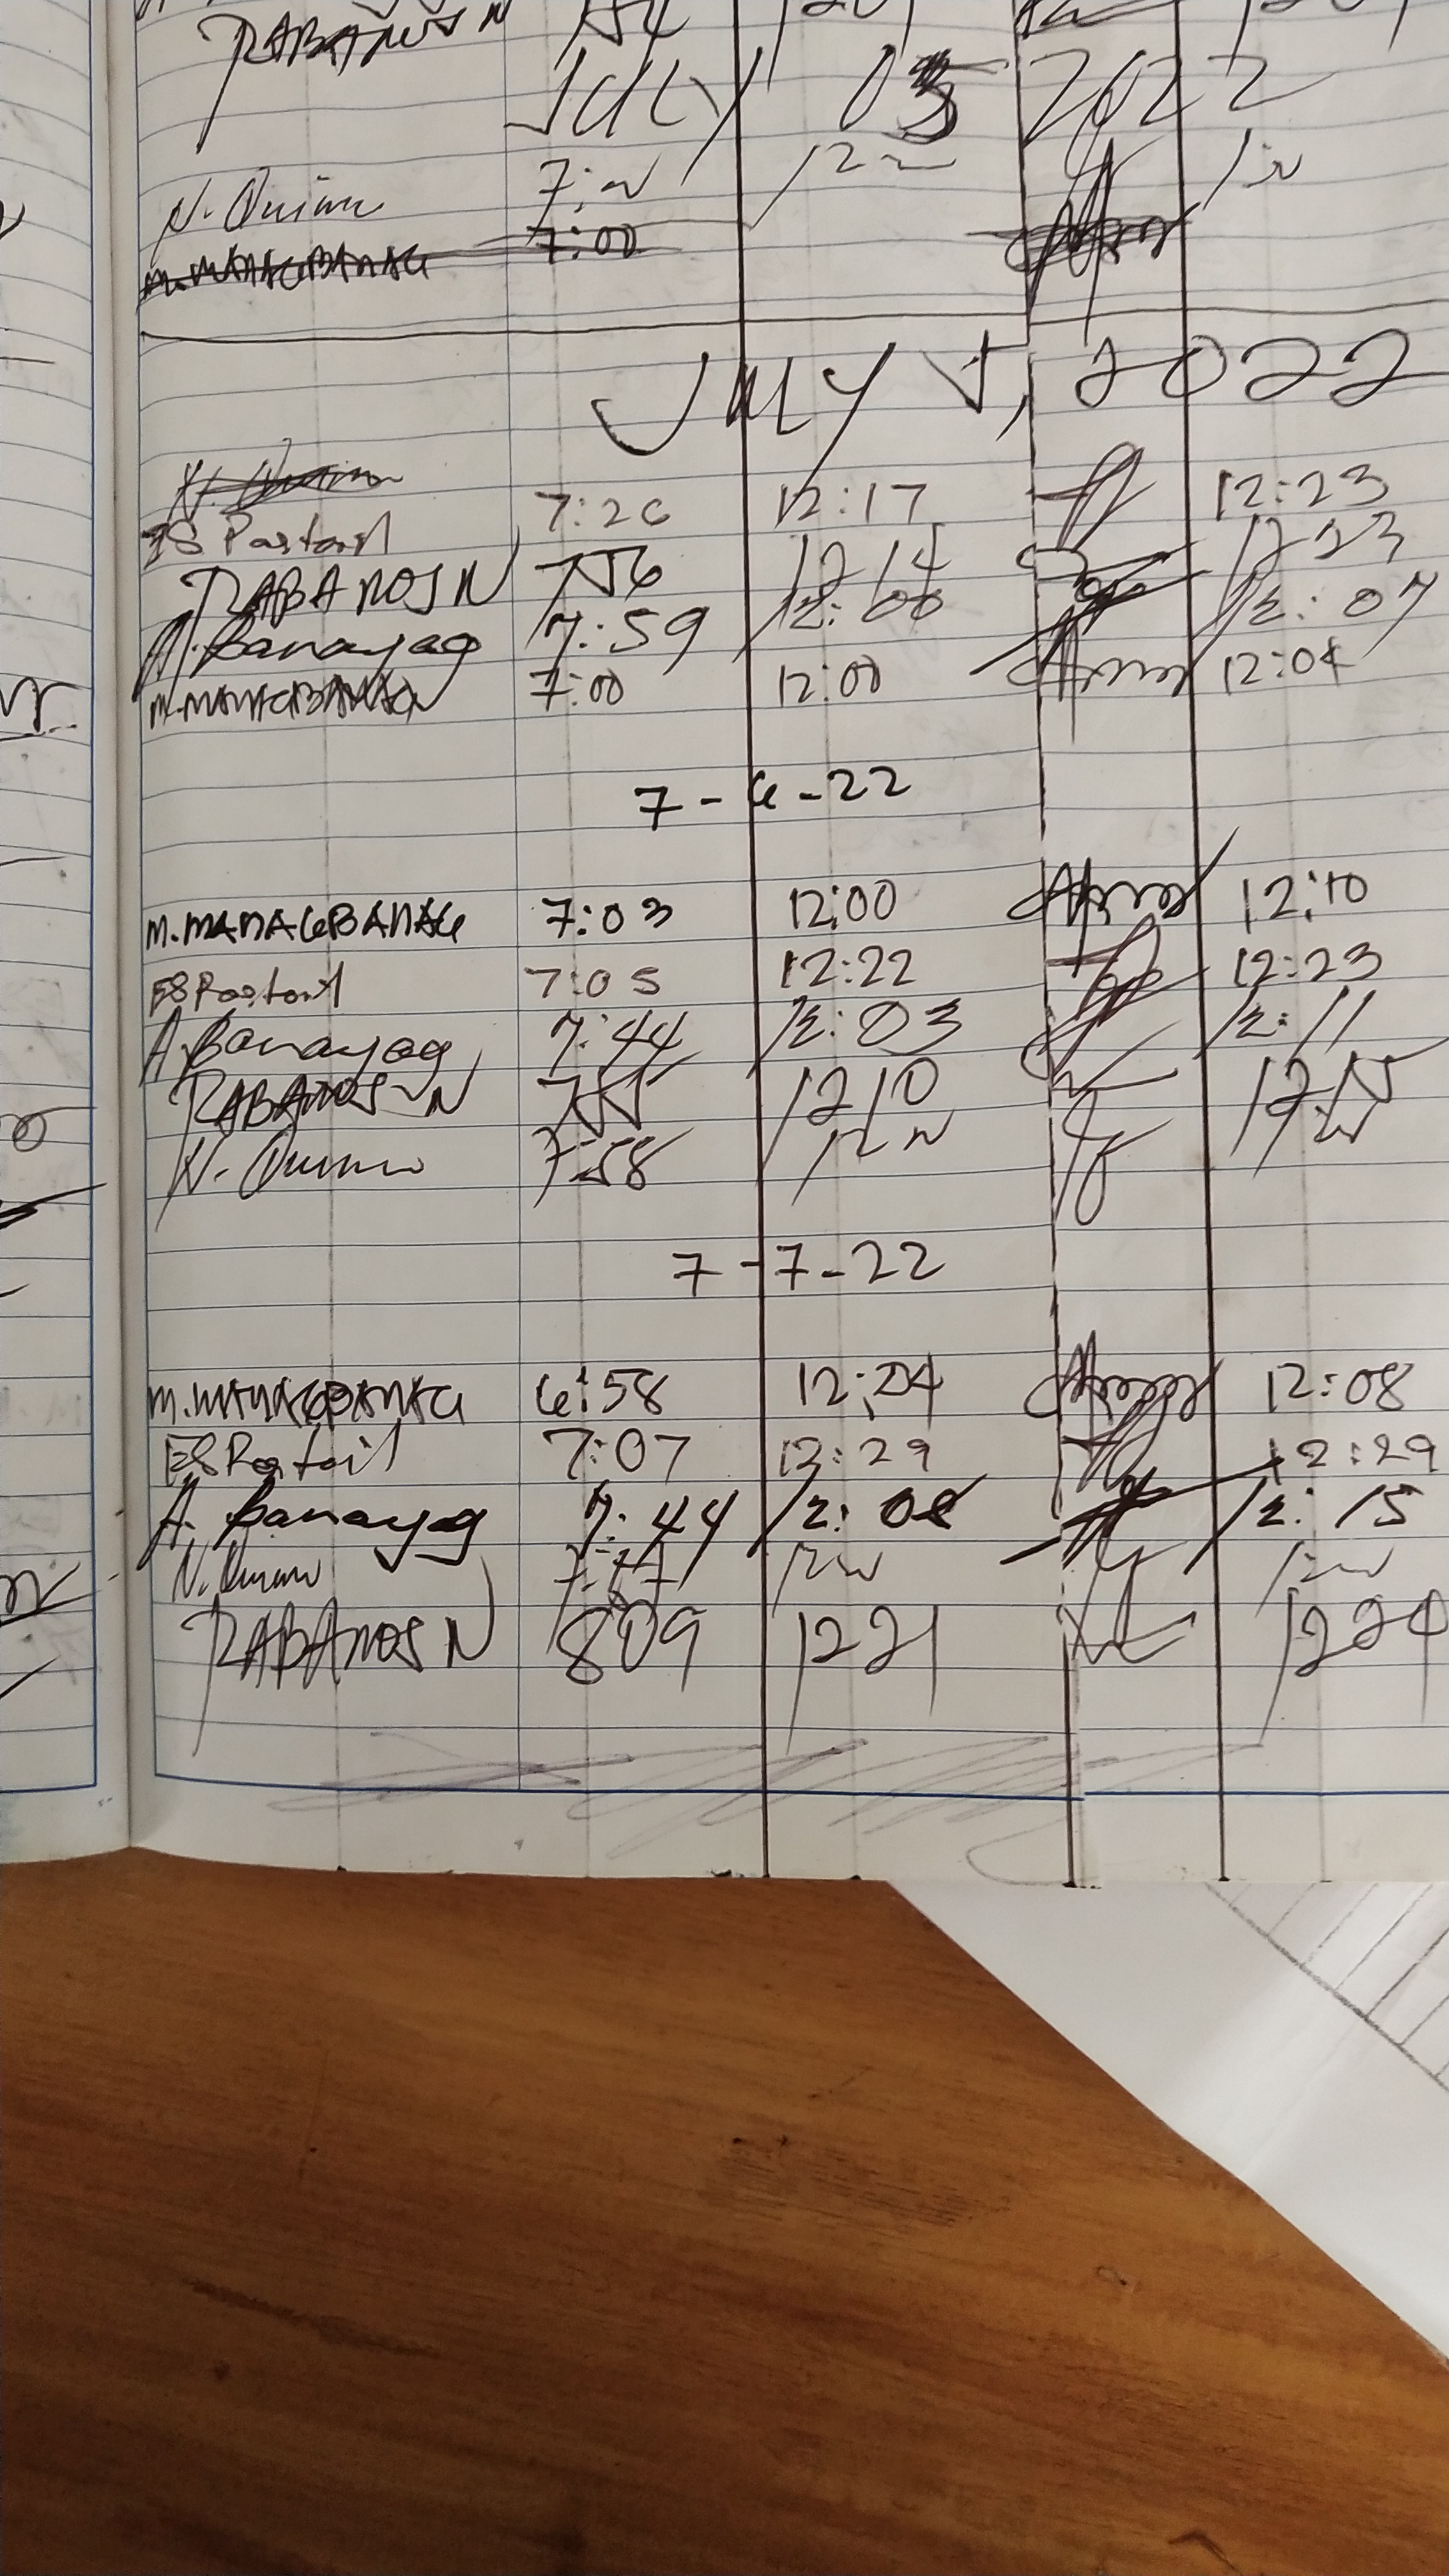 RABANOS N 754
JULY 05 2022
7:00
JULY 5, 2022
ES Pastoril 7:26 12:17 12:23
RABANOS N 756 1214 1223
A. Banayag 7:59 12:06 12:07
M. MANAGBANAG 7:00 12:00 12:04
7-6-22
M. MANAGBANAG 7:03 12:00 12:10
ES Pastoril 7:05 12:22 12:23
A. Banayag 7:44 12:03 12:11
RABANOS N 755 1210 1215
7:58 12 N
7-7-22
M. MANAGBANAG 6:58 12:04 12:08
ES Pastoril 7:07 12:29 12:29
A. Banayag 7:44 12:08 12:15
RABANOS N 809 1221 1224